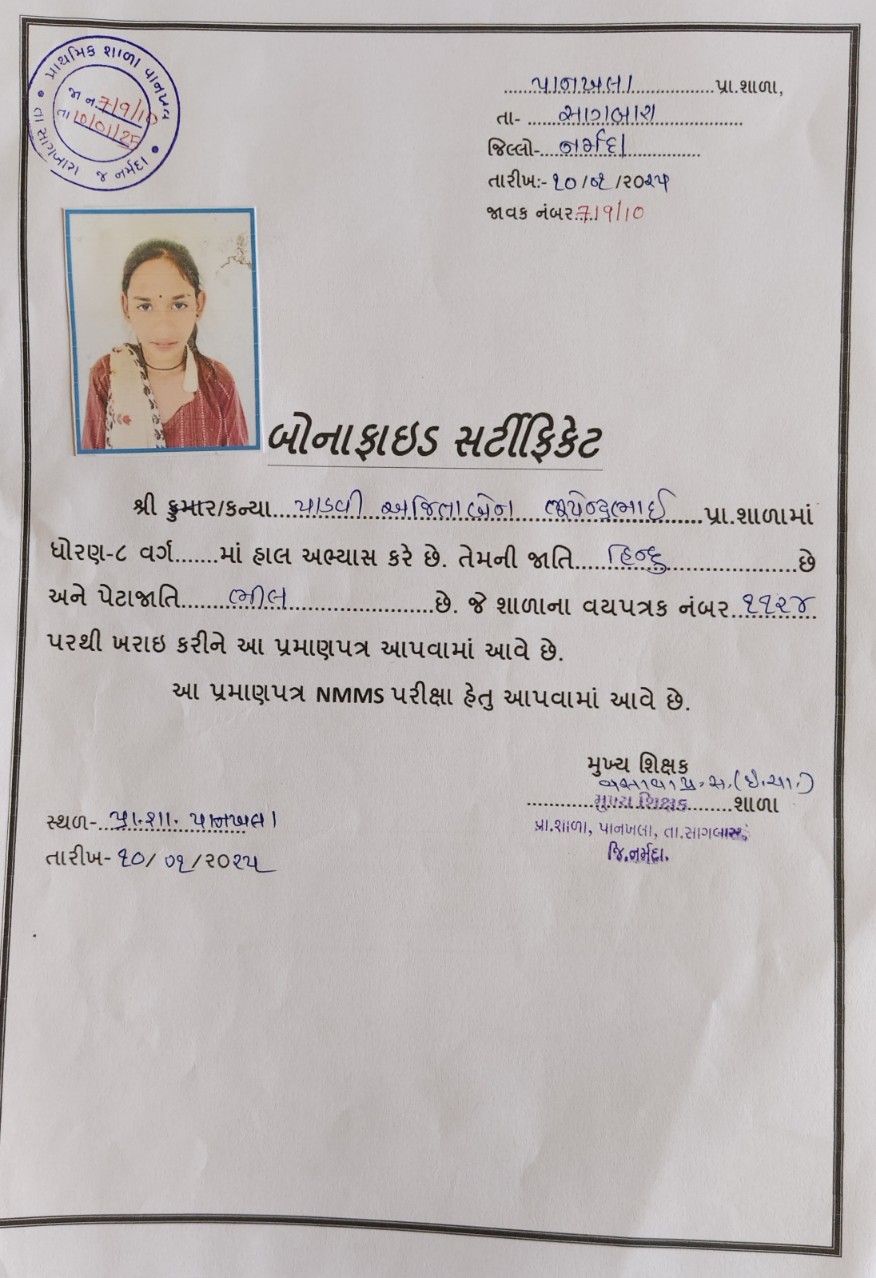 પ્રાથમિક શાળા પાનખલા
જા નં 719/10
તા 10/01/25
તા સાગબારા જી નર્મદા
પાનખલા પ્રા.શાળા,
તા- સાગબારા
જિલ્લો- નર્મદા
તારીખ:- ૧૦/૦૧/૨૦૨૫
જાવક નંબર 719/10
બોનાફાઇડ સર્ટીફિકેટ
શ્રી કુમાર/કન્યા પાડવી અજિતાબેન ભુપેન્દ્રભાઈ પ્રા.શાળામાં
ધોરણ-૮ વર્ગ.......માં હાલ અભ્યાસ કરે છે. તેમની જાતિ હિન્દુ છે
અને પેટાજાતિ ભીલ છે. જે શાળાના વયપત્રક નંબર ૧૧૨૪
પરથી ખરાઇ કરીને આ પ્રમાણપત્ર આપવામાં આવે છે.
આ પ્રમાણપત્ર NMMS પરીક્ષા હેતુ આપવામાં આવે છે.
મુખ્ય શિક્ષક
(ઈ.ચા.)
મુખ્ય શિક્ષક શાળા
પ્રા.શાળા, પાનખલા, તા.સાગબારા
જિ.નર્મદા.
સ્થળ- પ્રા.શા. પાનખલા
તારીખ- ૧૦/૦૧/૨૦૨૫